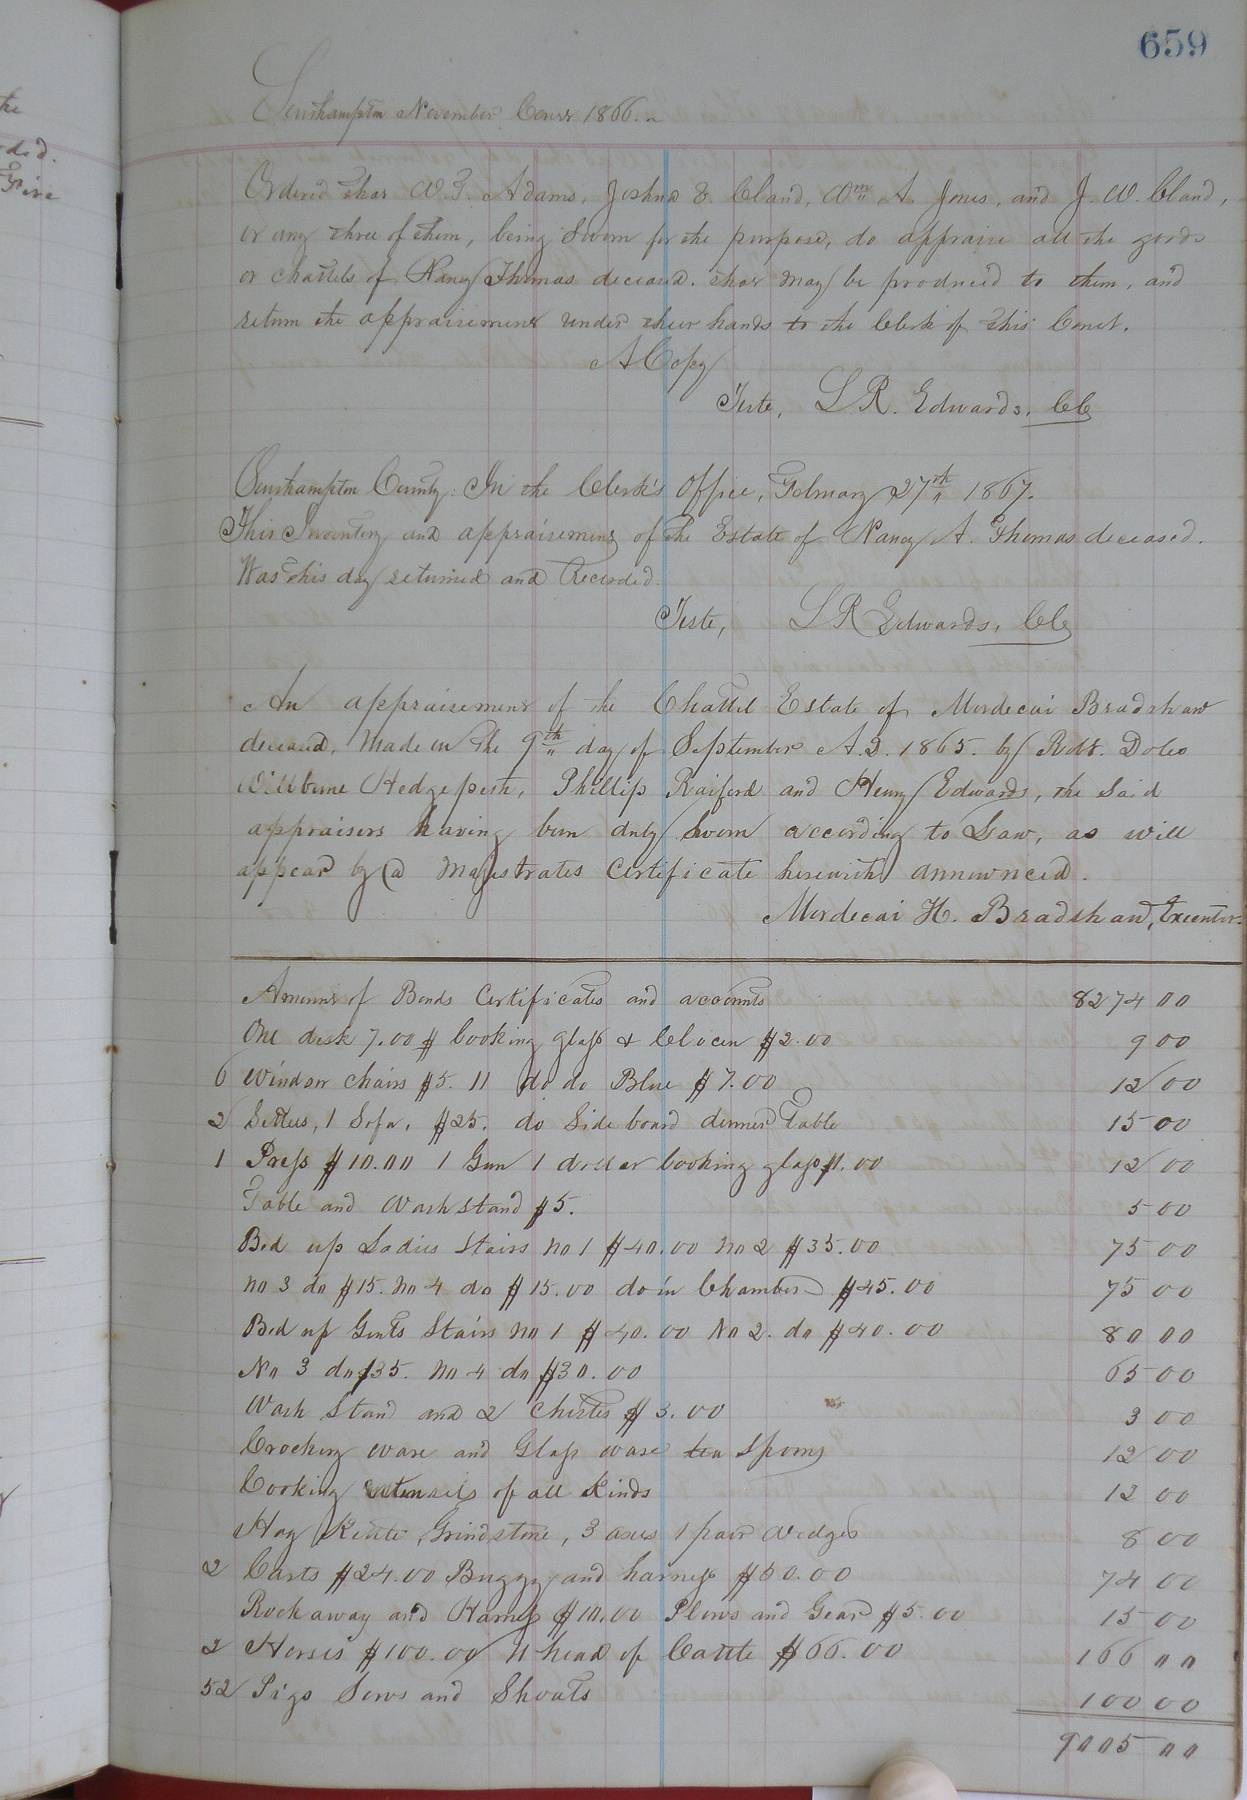 the
ded.
Five
659
Southampton November Court 1866.
Ordered that W. J. Adams, Joshua E. Bland, Wm A. Jones, and J. W. Bland,
or any three of them, being sworn for the purpose, do appraise all the goods
or chattels of Nancy Thomas deceased. that may be produced to them, and
return the appraisement under their hands to the Clerk of this Court.
A Copy
Teste, L R. Edwards, CC
Southampton County: In the Clerk's Office, February 27th 1867.
This Inventory and appraisement of the Estate of Nancy A. Thomas deceased.
Was this day returned and Recorded.
Teste, L R Edwards, CC
An appraisement of the Chattel Estate of Mordecai Bradshaw
deceased, Made on the 9th day of September A.D. 1865. by Robt. Doles
Willburne Hedgepeth, Phillip Raiford and Henry Edwards, the Said
appraisers having been duly Sworn according to Law, as will
appear by a Magistrates Certificate herewith announced.
Mordecai H. Bradshaw, Executor.
Amount of Bonds Certificates and accounts 8274 00
One desk 7.00 $ looking glass & $2.00 9 00
6 Windsor chairs $5. 11 do do Blue $7.00 12 00
2 Settees, 1 Sofa, $25. do Side board dinner Table 15 00
1 Press $10.00 1 Gun 1 dollar looking glass $1.00 12 00
Table and Wash stand $5. 5 00
Bed up Ladies Stairs No 1 $40.00 No 2 $35.00 75 00
No 3 do $15. No 4 do $15.00 do in Chamber $45.00 75 00
Bed up Gents Stairs No 1 $40.00 No 2. do $40.00 80 00
No 3 do $35. No 4 do $30.00 65 00
Wash Stand and 2 Chests $3.00 3 00
Crockery ware and Glass ware tea Spoons 12 00
Cooking utensils of all Kinds 12 00
Hay Grindstone, 3 axes 1 pair Wedges 8 00
2 Carts $24.00 Buggy and harness $50.00 74 00
Rockaway and Harness $10.00 Plows and Gear $5.00 15 00
2 Horses $100.00 11 head of Cattle $66.00 166 00
52 Pigs Sows and Shoats 100 00
9005 00